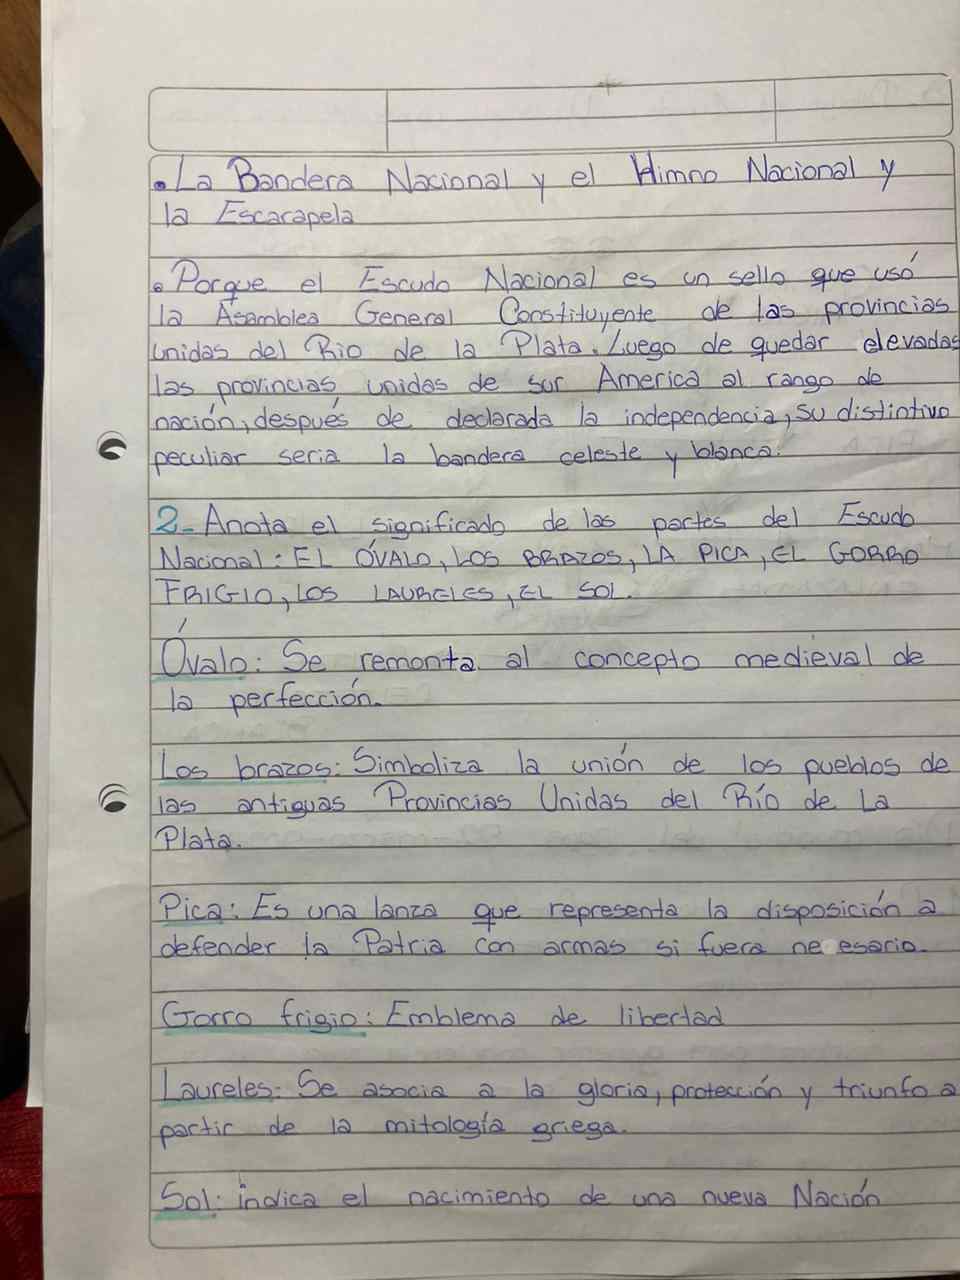 . La Bandera Nacional y el Himno Nacional y
la Escarapela
. Porque el Escudo Nacional es un sello que usó
la Asamblea General Constituyente de las provincias
unidas del Rio de la Plata. Luego de quedar elevadas
las provincias unidas de sur America al rango de
nación, después de declarada la independencia, su distintivo
peculiar seria la bandera celeste y blanca.
2- Anota el significado de las partes del Escudo
Nacional: EL ÓVALO, LOS BRAZOS, LA PICA, EL GORRO
FRIGIO, LOS LAURELES, EL SOL.
Óvalo: Se remonta al concepto medieval de
la perfección.
Los brazos: Simboliza la unión de los pueblos de
las antiguas Provincias Unidas del Río de La
Plata.
Pica: Es una lanza que representa la disposición a
defender la Patria con armas si fuera ne esario.
Gorro frigio: Emblema de libertad
Laureles: Se asocia a la gloria, protección y triunfo a
partir de la mitología griega.
Sol: indica el nacimiento de una nueva Nación